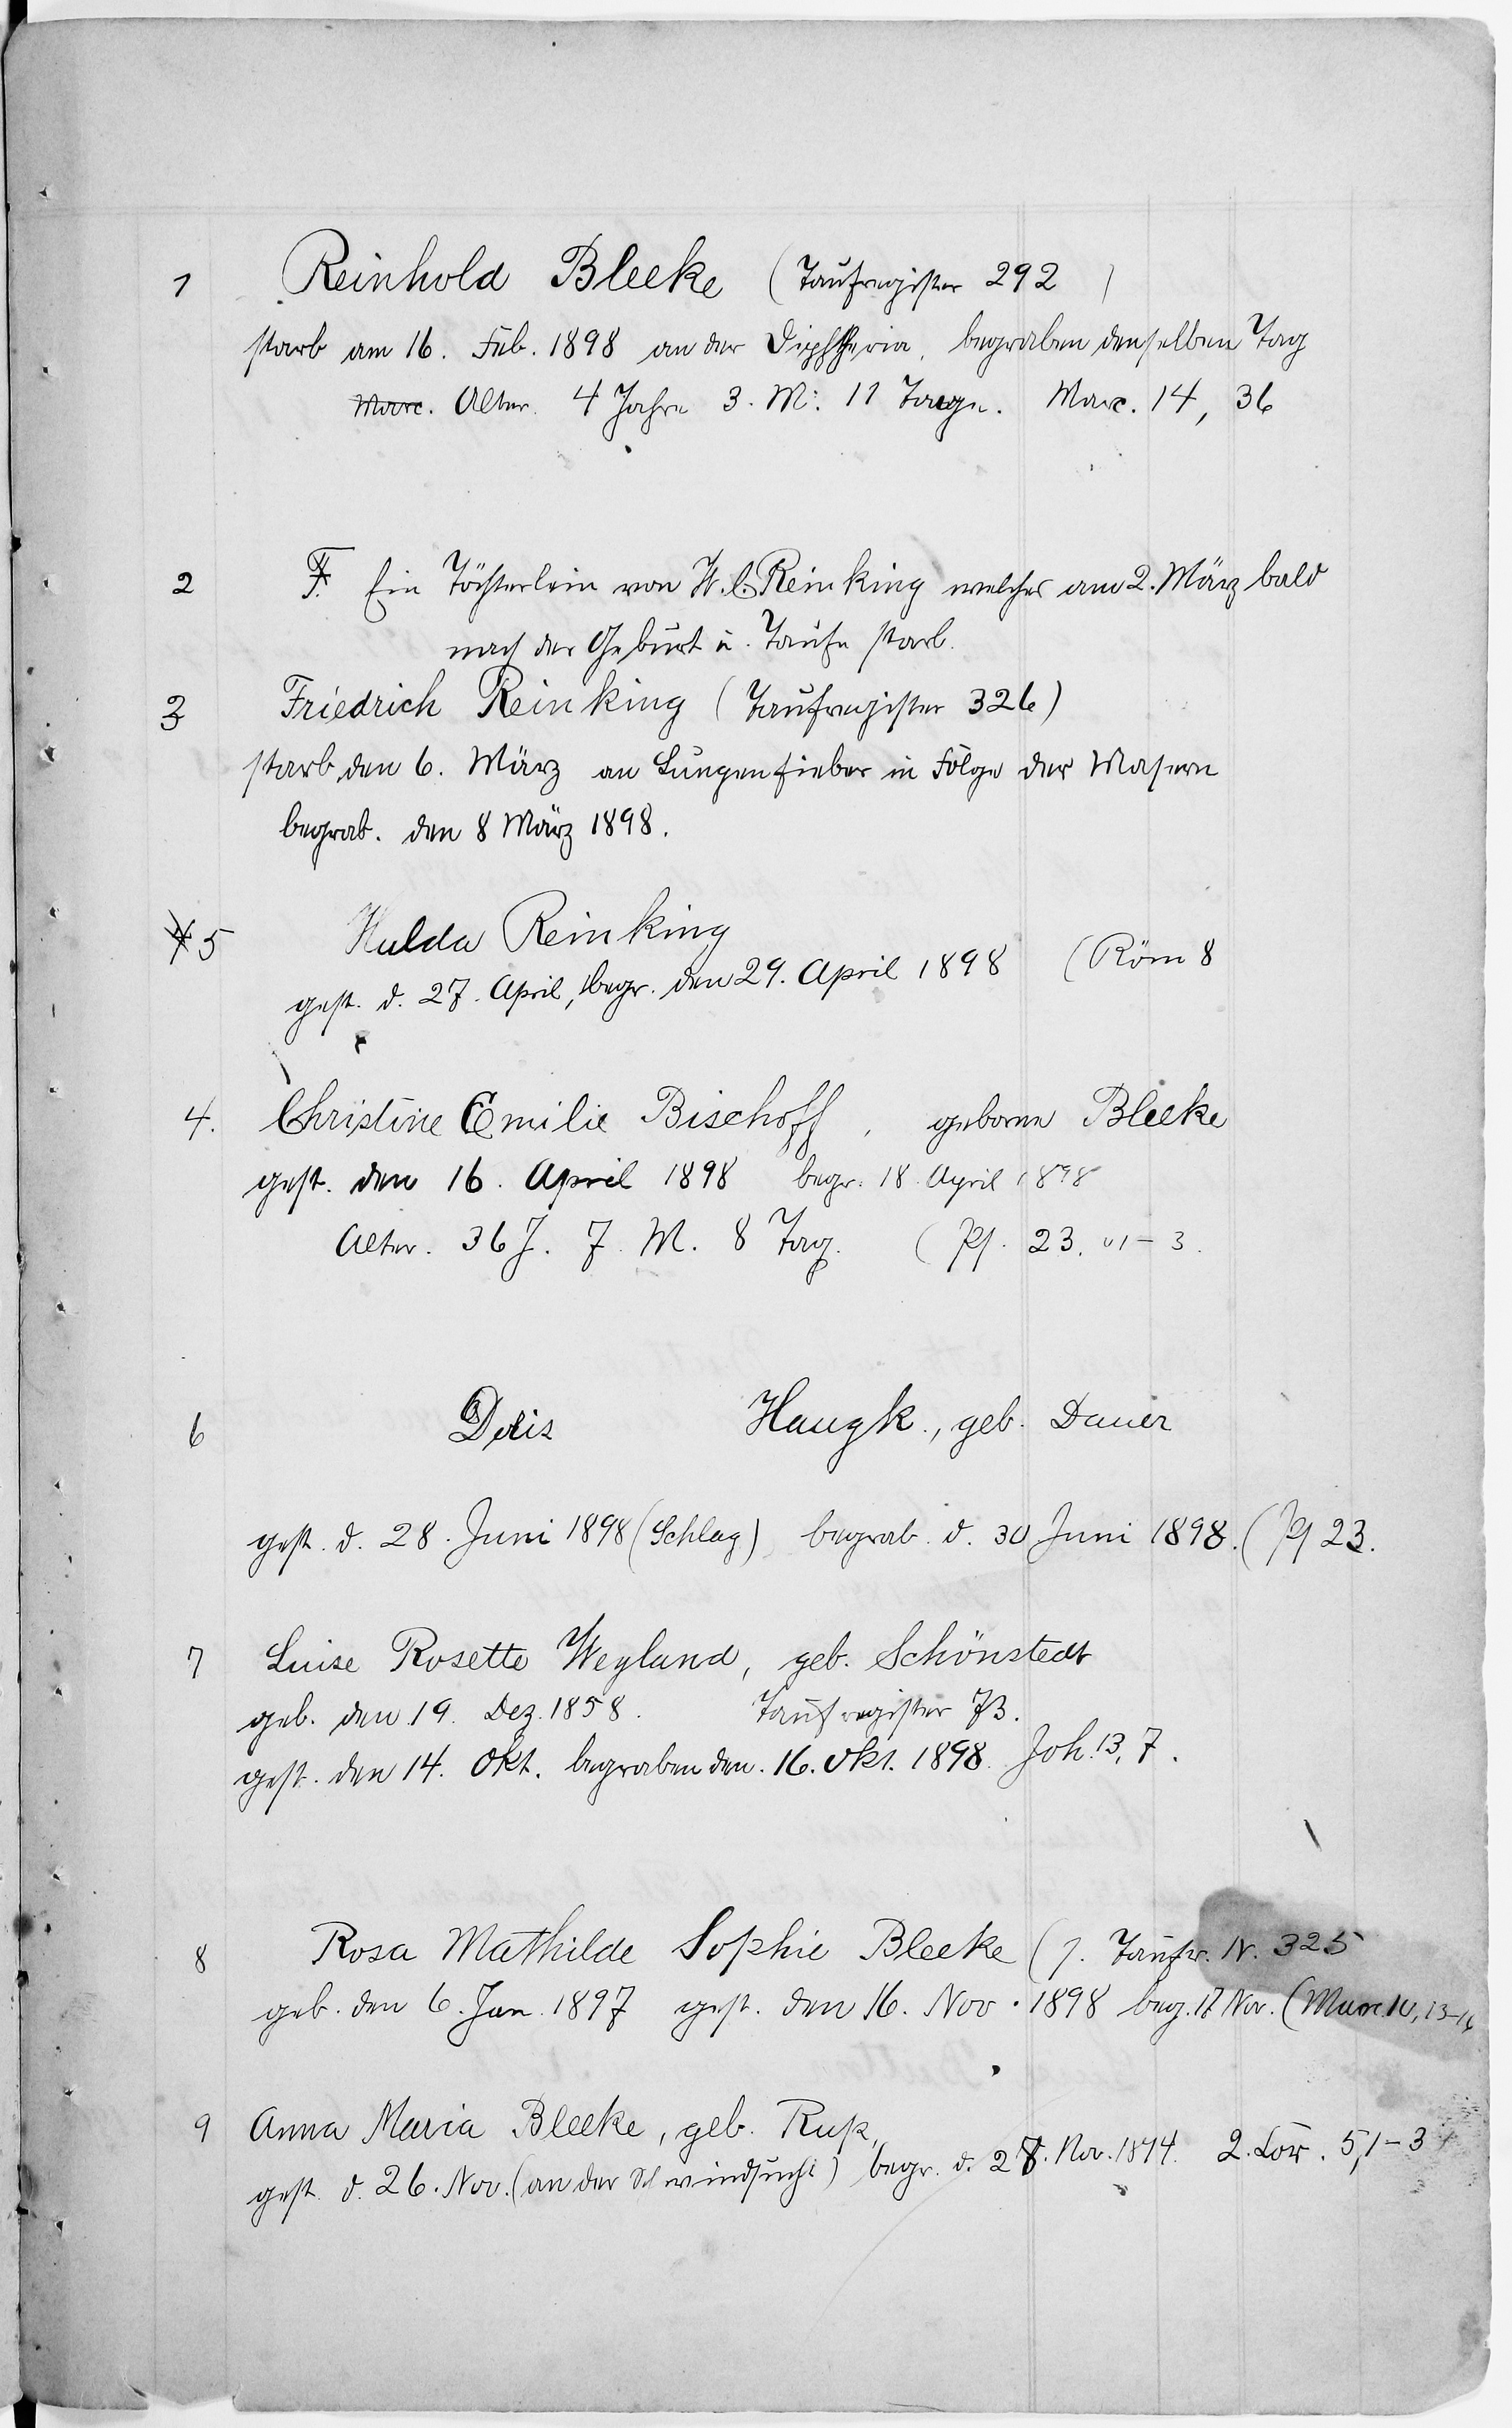 1 Reinhold Bleeke (Taufregister 292 )
starb am 16. Feb. 1898 an der Diphtheria, begraben denselben Tag
Marc. Alter. 4 Jahre 3. M: 11 Tage. Marc. 14, 36
2 Ein Töchterlein von W. C. Reinking welches am 2. März bald
nach der Geburt u. Taufe starb.
3 Friedrich Reinking (Taufregister 326)
starb den 6. März an Lungenfieber in Folge der Masern
begrab. den 8 März 1898.
5 Hulda Reinking
gest. d. 27. April, begr. den 29. April 1898 (Röm 8
4. Christine Emilie Bischoff, geborne Bleeke
gest. den 16. April 1898 begr. 18. April 1898
Alter. 36 J. 7. M. 8 Tag. (Ps. 23. v1-3.
6 Doris Haugk., geb. Dauer
gest. d. 28. Juni 1898 (Schlag) begrab. d. 30 Juni 1898. (Ps 23.
7 Luise Rosette Weyland, geb. Schönstedt
geb. den 19. Dez. 1858. Taufregister 73.
gest. den 14. Okt. begraben den. 16. Okt. 1898. Joh. 13, 7.
8 Rosa Mathilde Sophie Bleeke (s. Taufr. N. 325
geb. den 6. Jan. 1897 gest. den 16. Nov. 1898 beg. 17 Nov. (Marc. 10, 13-16
9 Anna Maria Bleeke, geb. Rup,
gest. d. 26. Nov. (an der Schwindsucht) begr. d. 28. Nov. 1894. 2. Cor. 5,1-3